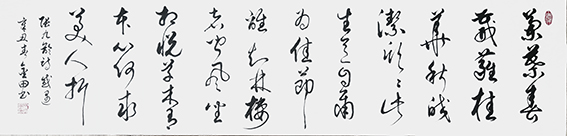 蘭葉春
葳蕤桂
華秋皎
潔欣々此
生意自爾
為佳節
誰知林棲
者聞風坐
相悅草木有
本心何求
美人折
張九齡詩感遇
辛丑春金田書